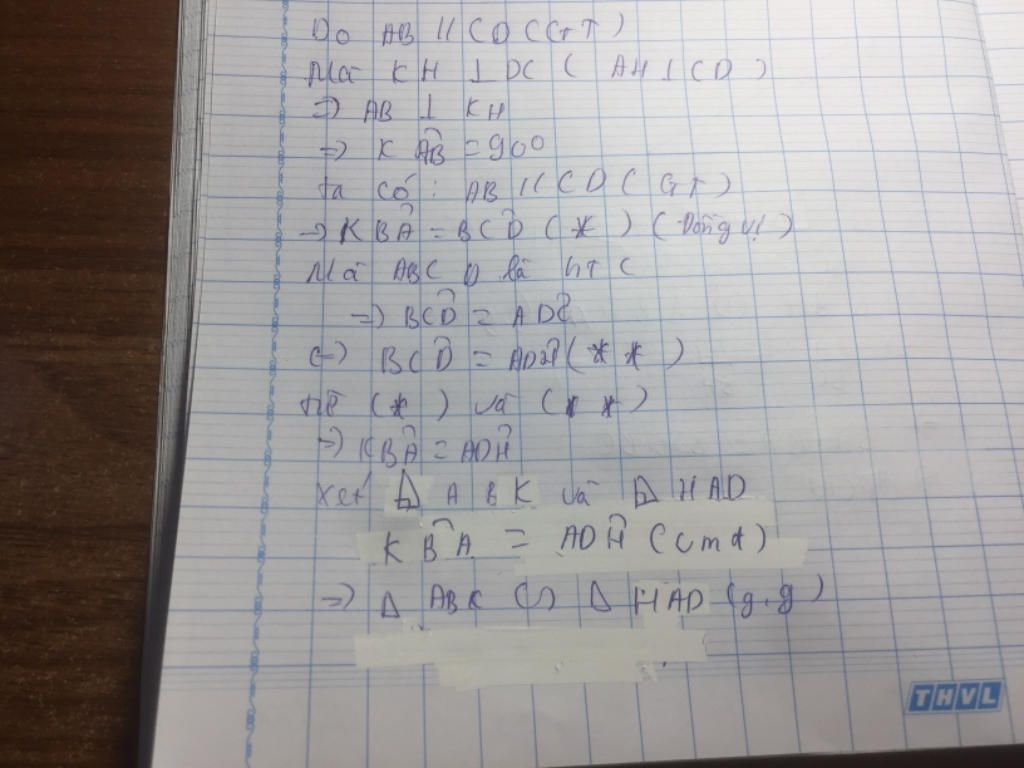 Do AB // CD (GT)
Mà KH ⊥ DC ( AH ⊥ CD )
=> AB ⊥ KH
=> KÂB = 90o
Ta có : AB // CD ( GT )
=> KB̂A = BĈD ( * ) ( Đồng vị )
Mà ABCD là hTC
=> BĈD = AD̂C
<=> BĈD = AD̂H ( * * )
Từ ( * ) và ( * * )
=> KB̂A = AD̂H
Xét Δ ABK và Δ HAD
KB̂A = AD̂H (cmt)
=> Δ ABK ∽ Δ HAD (g.g)
THVL